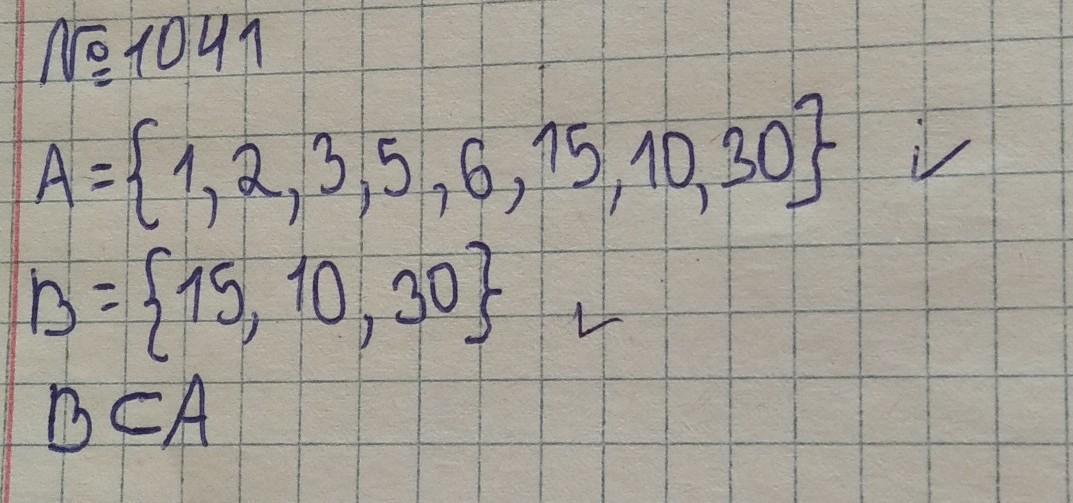 №1041
A={1,2,3,5,6,15,10,30} ✓
B={15,10,30} ✓
B⊂A